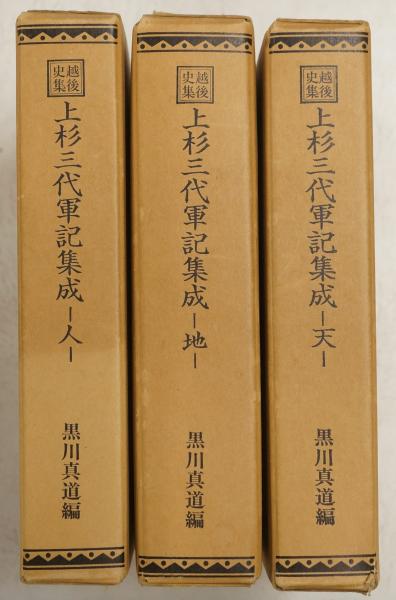 越後
史集
上杉三代軍記集成-天-
黒川真道編
越後
史集
上杉三代軍記集成-地-
黒川真道編
越後
史集
上杉三代軍記集成-人-
黒川真道編